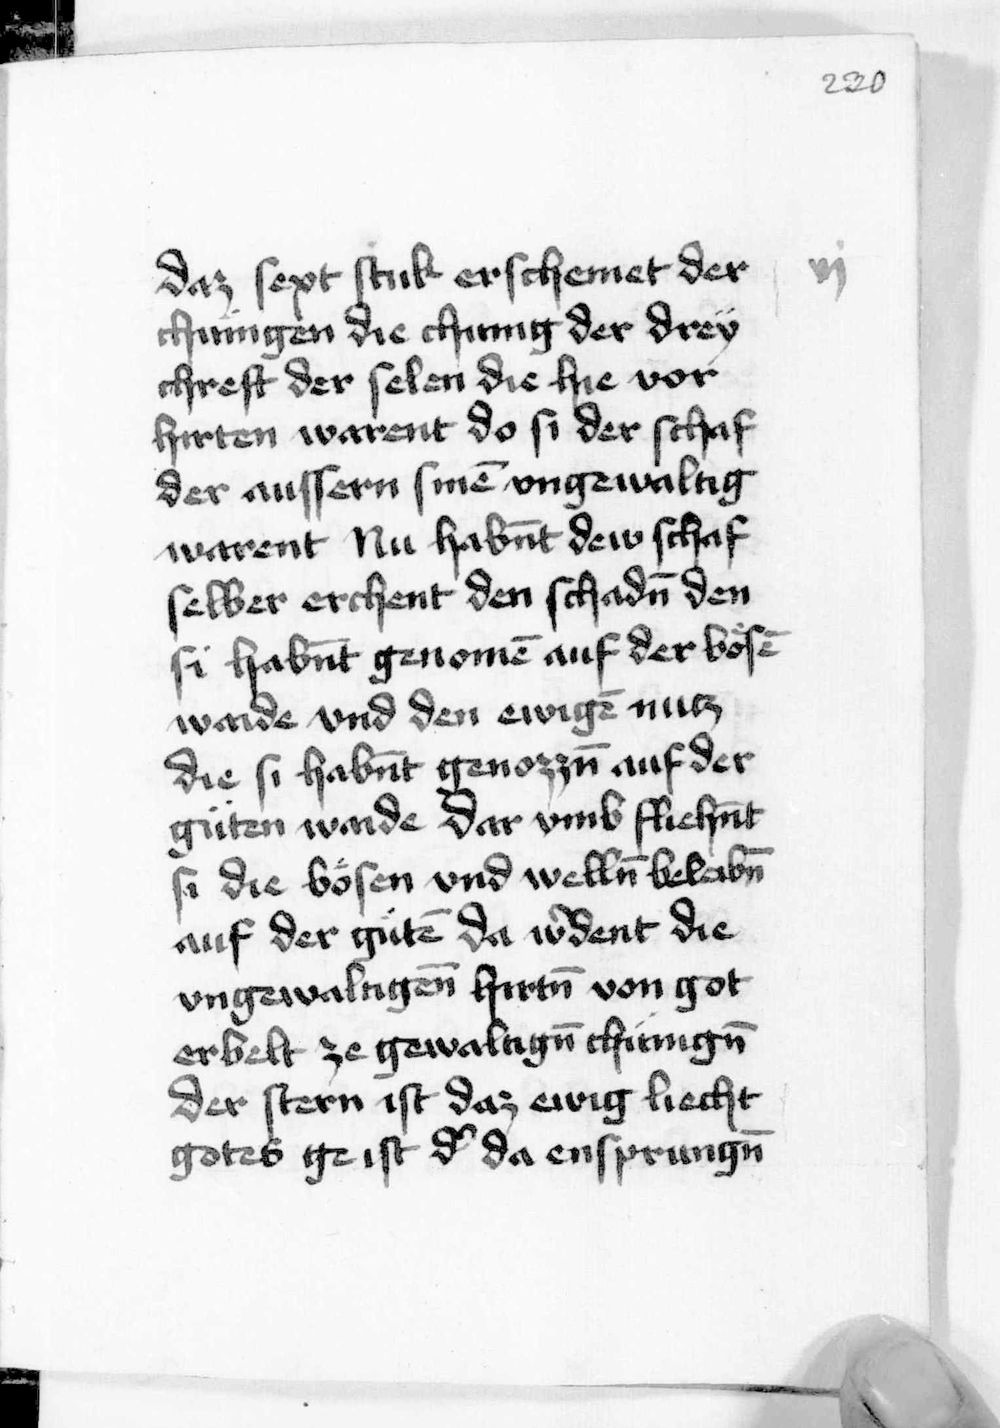 230
daz sext stuk erschemet der vj
chuingen die chunig der dreÿ
chreft der selen die hie vor
hirten warent do si der schaf
der aussern sinē vngewaltig
warent Nu habn̄t dew schaf
selber erchent den schadn̄ den
si habn̄t genomē auf der bösē
waide vnd den ewigē nutz
die si habn̄t genozzn̄ auf der
güten waide Dar vmb fliehn̄t
si die bösen vnd welln̄ beleibn̄
auf der gütē da w̉dent die
vngewaltigen̄ hirtn̄ von got
erbelt ze gewaltign̄ chünign̄
Der stern ist daz ewig liecht
gotes geist d̉ da ensprungn̄